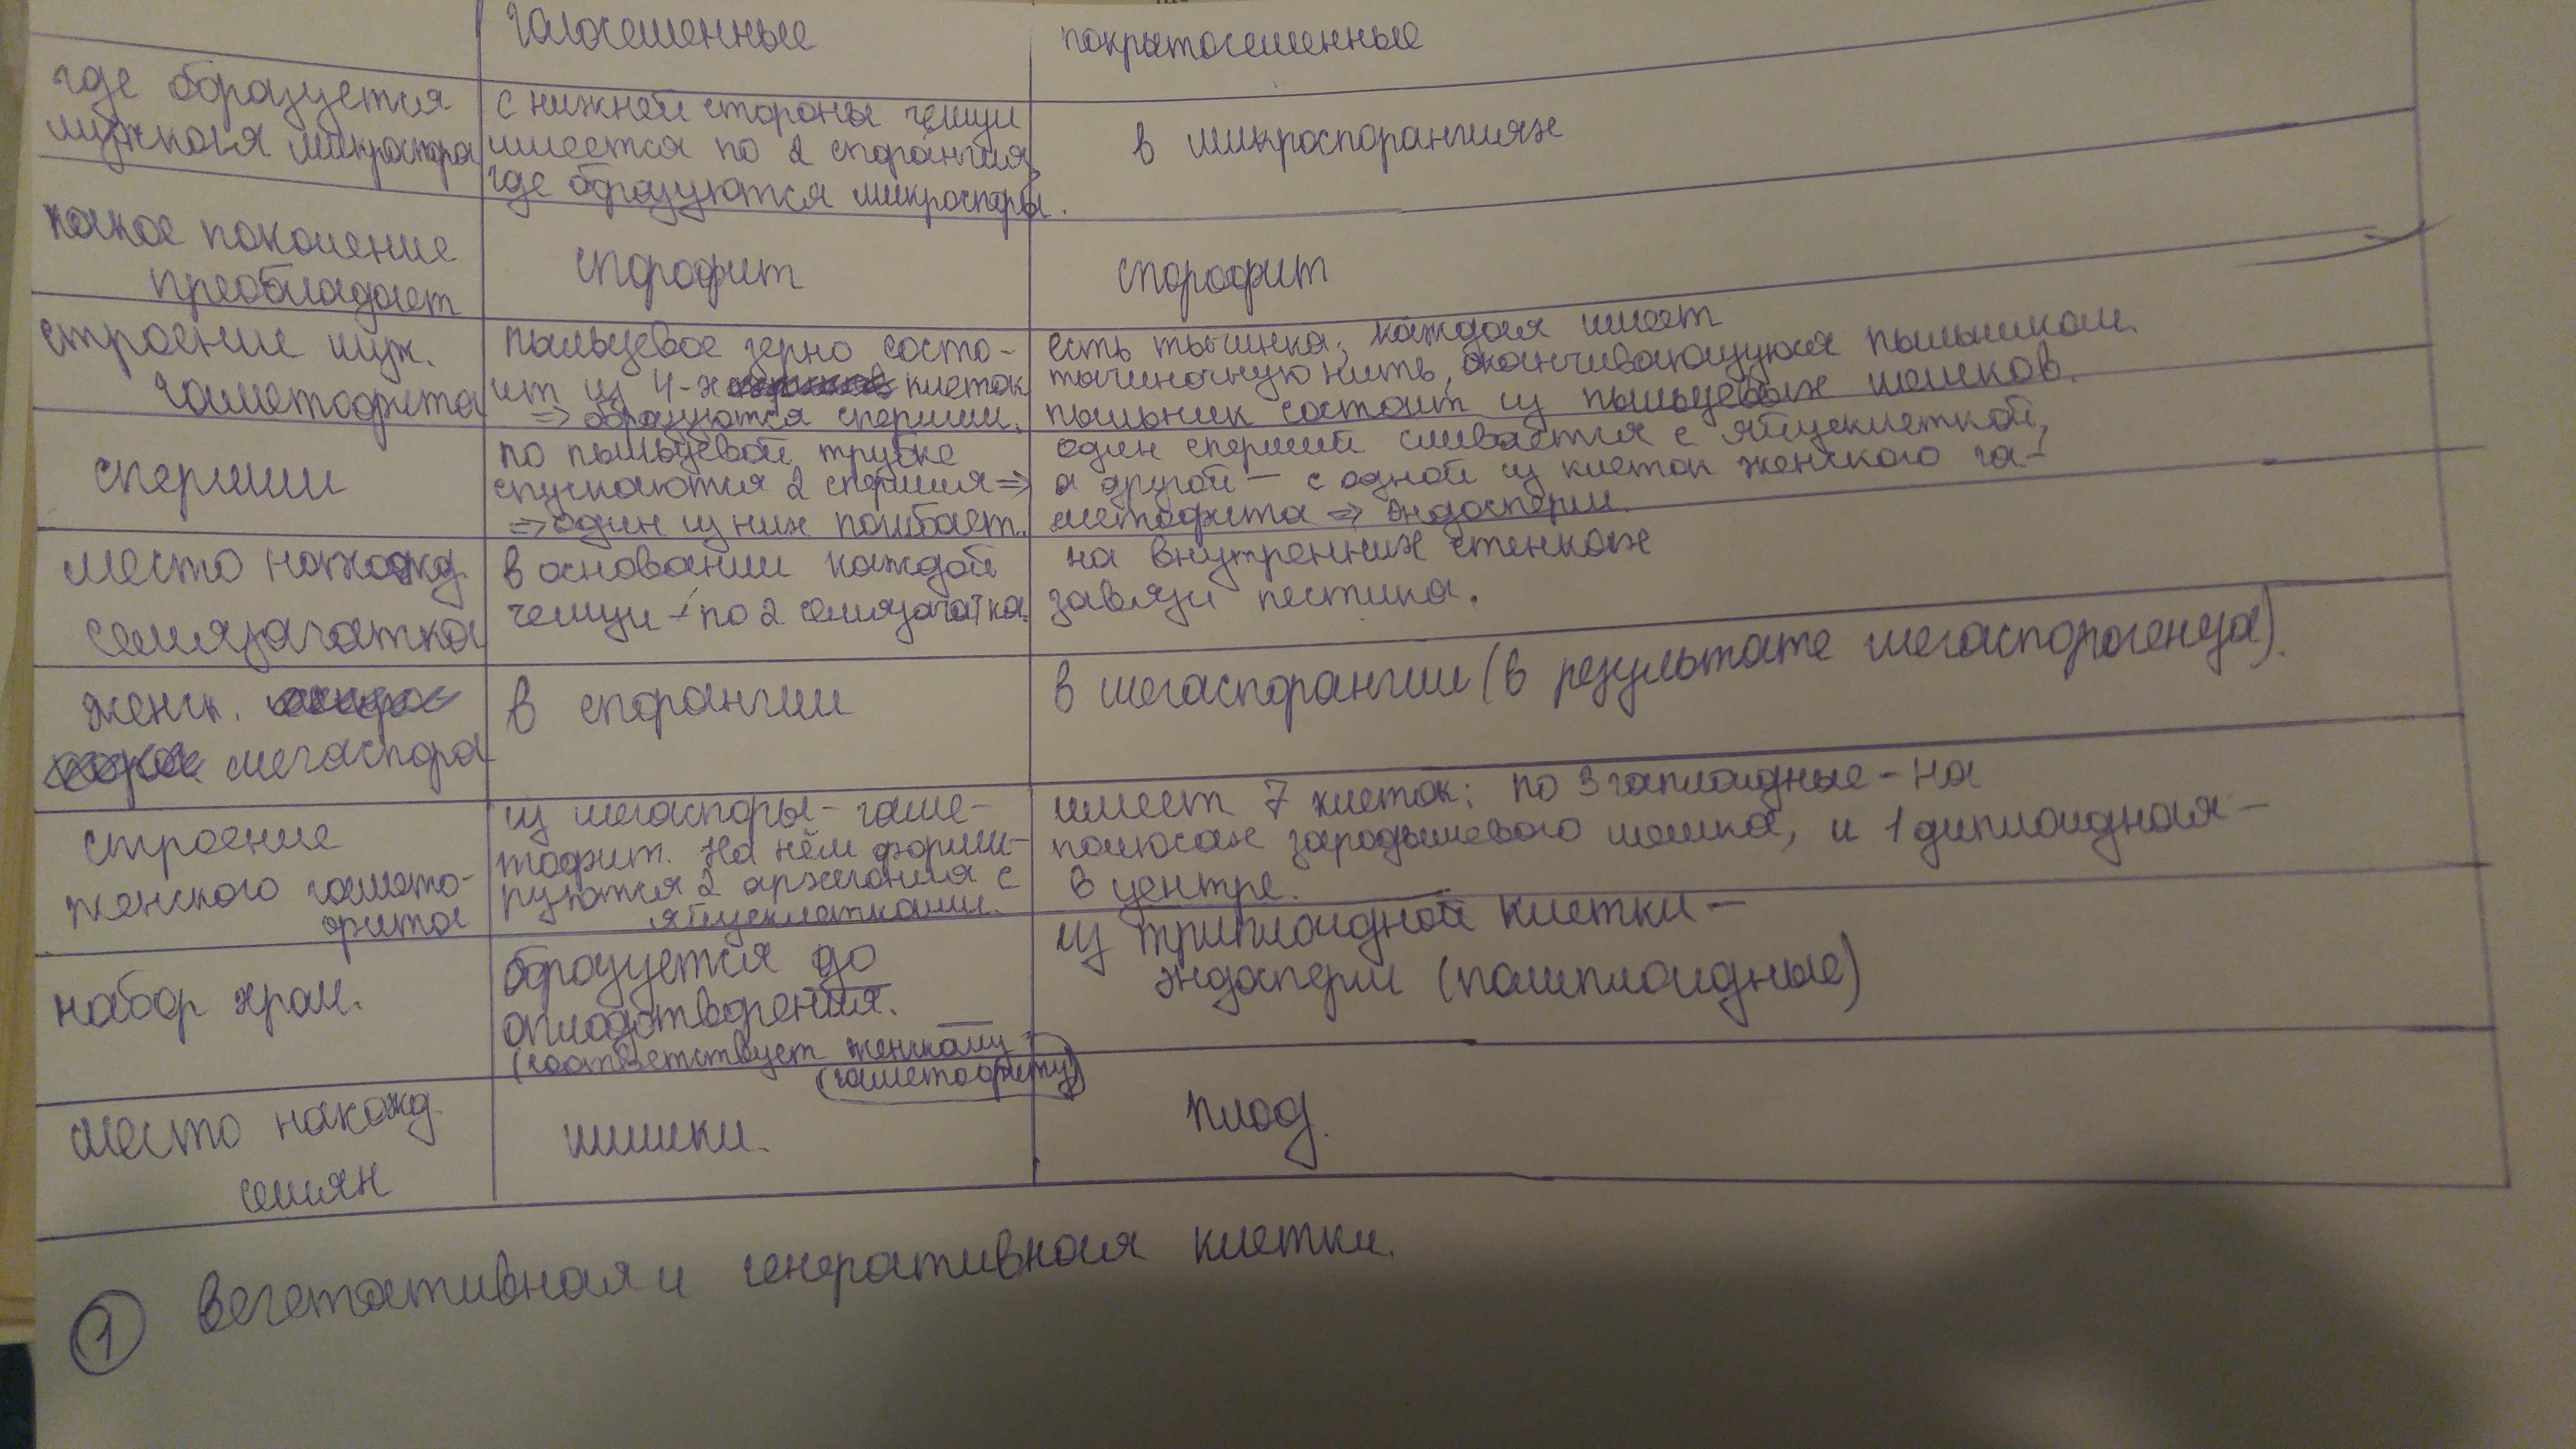 голосеменные
покрытосеменные
где образуется
мужская микроспора
с нижней стороны чешуи
имеется по 2 спорангия,
где образуются микроспоры.
в микроспорангиях
какое поколение
преобладает
спорофит
спорофит
строение муж.
гаметофита
пыльцевое зерно состо-
ит из 4-х клеток
=> образуются спермии.
есть тычинка, каждая имеет
тычиночную нить, оканчивающуюся пыльником.
пыльник состоит из пыльцевых мешков.
спермии
по пыльцевой трубке
спускаются 2 спермия =>
=> один из них погибает.
один спермий сливается с яйцеклеткой,
а другой – с одной из клеток женского га-
метофита => эндосперм.
место нахожд.
семязачатка
в основании каждой
чешуи – по 2 семязачатка.
на внутренних стенках
завязи пестика.
женск.
мегаспора
в спорангии
в мегаспорангии (в результате мегаспорогенеза).
строение
женского гамето-
фита
из мегаспоры – гаме-
тофит. На нём форми-
руются 2 архегония с
яйцеклетками.
имеет 7 клеток: по 3 гаплоидные – на
полюсах зародышевого мешка, и 1 диплоидная –
в центре.
набор хром.
образуется до
оплодотворения.
(соответствует женскому
гаметофиту)
из триплоидной клетки –
эндосперм (полиплоидные)
место нахожд.
семян
шишки.
плод.
1 вегетативная и генеративная клетки.